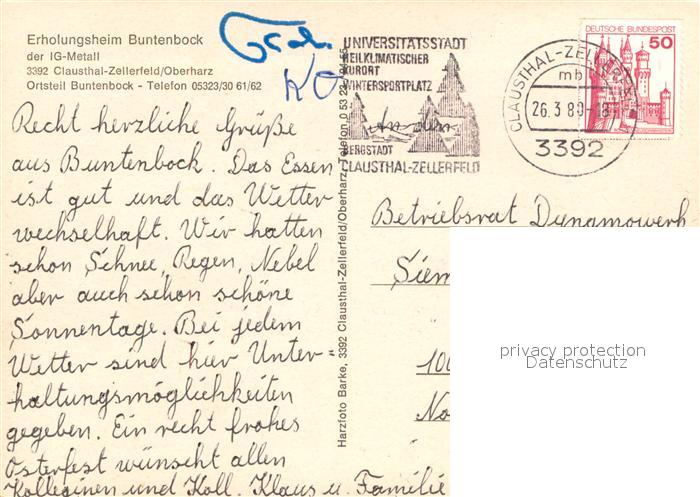 Erholungsheim Buntenbock
der IG-Metall
3392 Clausthal-Zellerfeld/Oberharz
Ortsteil Buntenbock - Telefon 05323/30 61/62
Recht herzliche Grüße
aus Buntenbock. Das Essen
ist gut und das Wetter
wechselhaft. Wir hatten
schon Schnee, Regen, Nebel
aber auch schon schöne
Sonnentage. Bei jedem
Wetter sind hier Unter-
haltungsmöglichkeiten
gegeben. Ein recht frohes
Osterfest wünscht allen
Kolleginen und Koll. Klaus u. Familie
Harzfoto Barke, 3392 Clausthal-Zellerfeld/Oberharz, Telefon 0 53 23
UNIVERSITÄTSSTADT
HEILKLIMATISCHER
KURORT
WINTERSPORTPLATZ
BERGSTADT
CLAUSTHAL-ZELLERFELD
CLAUSTHAL-ZELLERFELD
mb
26.3.80-18
3392
DEUTSCHE BUNDESPOST
50
Betriebsrat Dynamowerk
Siem
100
No
privacy protection
Datenschutz